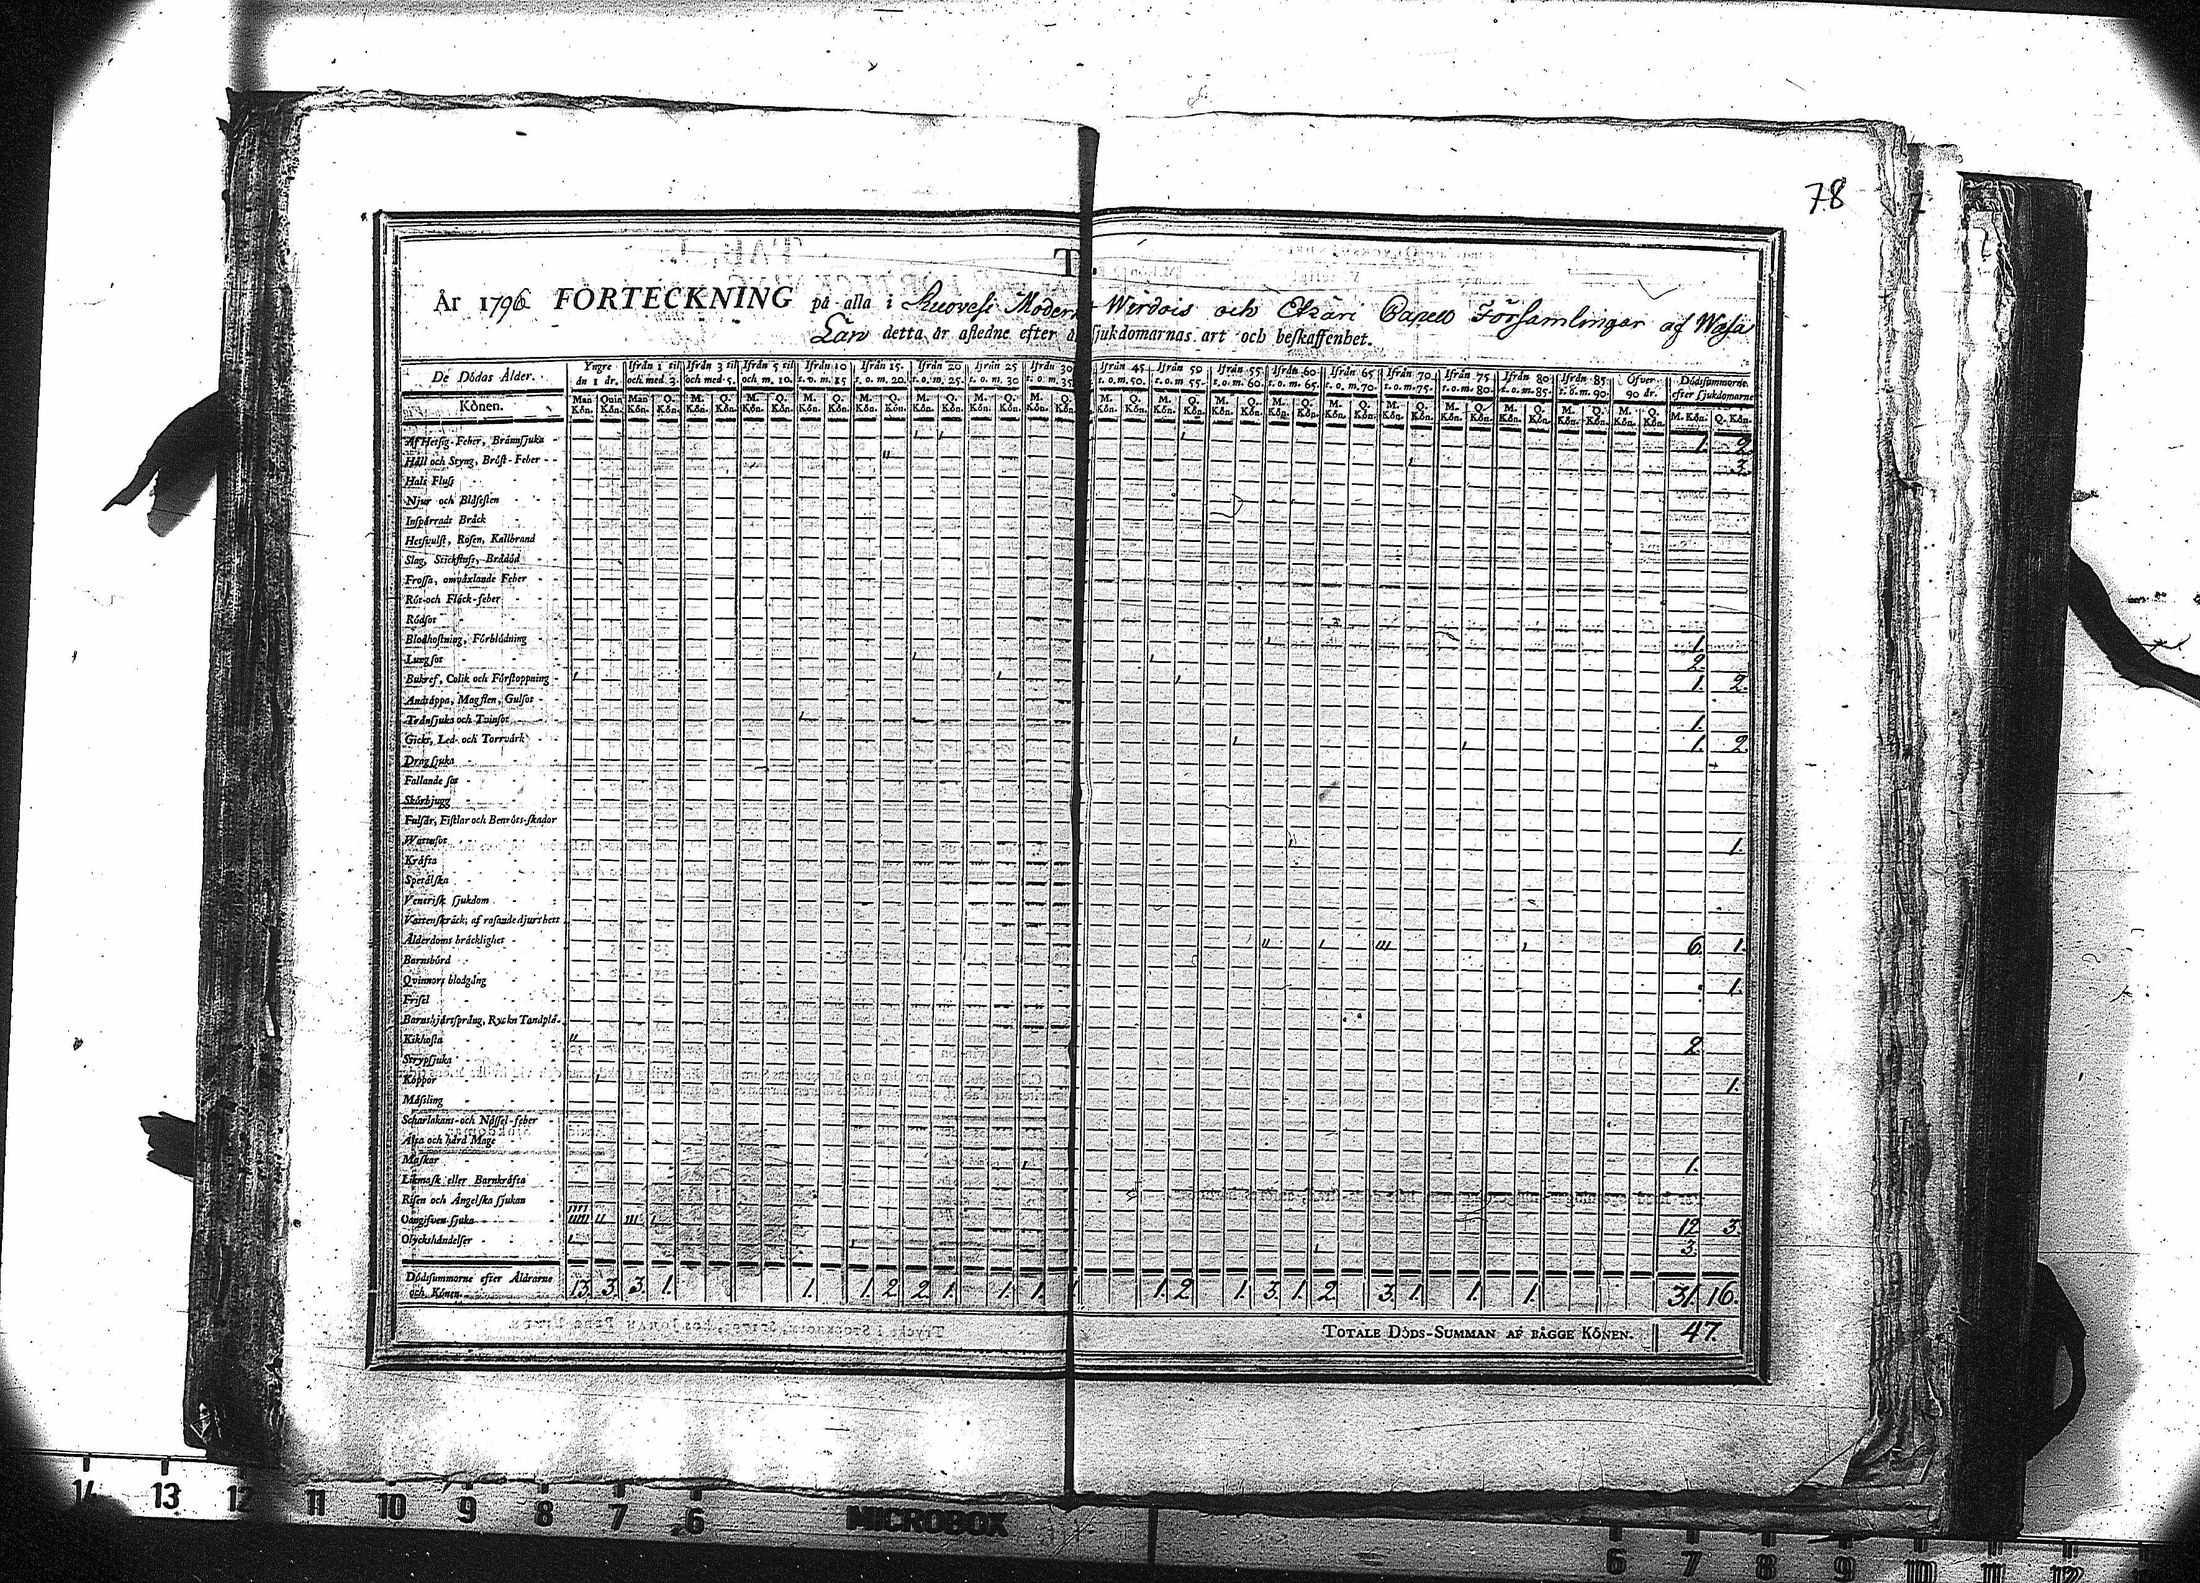 78
År 1796 FÖRTECKNING på alla i Ruovesi Moder Wirdois och Etzäri Capell Församlingar af Wasa
Län detta år afledne efter sjukdomarnas art och beskaffenhet.
De Dödas Ålder. Yngre än 1 år. Ifrån 1 til och med 3. Ifrån 3 til och med 5. Ifrån 5 til och m. 10. Ifrån 10 t. o. m. 15 Ifrån 15. t. o. m. 20. Ifrån 20 t. o. m. 25. Ifrån 25 t. o. m. 30 Ifrån 30 t. o. m. 35 Ifrån 45 t. o. m. 50. Ifrån 50 t. o. m 55. Ifrån 55 t. o. m. 60. Ifrån 60 t. o. m. 65. Ifrån 65 t. o. m. 70. Ifrån 70 t. o. m. 75. Ifrån 75 t. o. m. 80. Ifrån 80 t. o. m. 85. Ifrån 85 t. o. m. 90. Öfver 90 år. Dödssummorne efter sjukdomarne
Könen. Man Kön. Quin Kön. Man Kön. Q. Kön. M. Kön. Q. Kön. M. Kön. Q. Kön. M. Kön. Q. Kön. M. Kön. Q. Kön. M. Kön. Q. Kön. M. Kön. Q. Kön. M. Kön. Q. Kön. M. Kön. Q. Kön. M. Kön. Q. Kön. M. Kön. Q. Kön. M. Kön. Q. Kön. M. Kön. Q. Kön. M. Kön. Q. Kön. M. Kön. Q. Kön. M. Kön. Q. Kön. M. Kön. Q. Kön. M. Kön. Q. Kön. M. Kön. Q. Kön.
Af Hetsig-Feber, Brännsjuka 1. 2.
Håll och Styng, Bröst-Feber 3.
Hals Fluss
Njur och Blåsesten
Inspärradt Bråck
Hetsvulst, Rosen, Kallbrand
Slag, Stickfluss, Brådöd
Frossa, omväxlande Feber
Röt-och Fläck-feber
Rödsot
Blodhostning, Förblödning 1.
Lungsot 2.
Bukref, Colik och Förstoppning 1. 2.
Andtäppa, Magsten, Gulsot
Trånsjuka och Tvinsot 1.
Gickt, Led- och Torrvärk 1. 2
Dragsjuka
Fallande sot
Skörbjugg
Fulsår, Fistlar och Benröts-skador
Wattusot 1.
Kräfta
Spetälska
Venerisk sjukdom
Vattenskräck, af rasande djurs bett
Ålderdoms bräcklighet 6. 1.
Barnsbörd
Qvinnors blodgång 1.
Frisel
Barnshjärtsprång, Ryckn Tandplå.
Kikhosta 2.
Strypsjuka
Koppor 1.
Mässling
Scharlakans-och Nässel-feber
Älta och hård Mage
Maskar 1.
Likmask eller Barnkräfta
Risen och Ängelska sjukan
Oangifven sjuka 12 3.
Olyckshändelser 3.
Dödssummorne efter Åldrarne
och Könen 13. 3. 3. 1. 1. 1. 2 2. 1. 1. 1. 1. 2. 1. 3. 1. 2. 3. 1. 1. 1. 31. 16.
TOTALE DÖDS-SUMMAN AF BÄGGE KÖNEN. 47.
14 13 12 11 10 9 8 7 6 MICROBOX 6 7 8 9 10 11 12